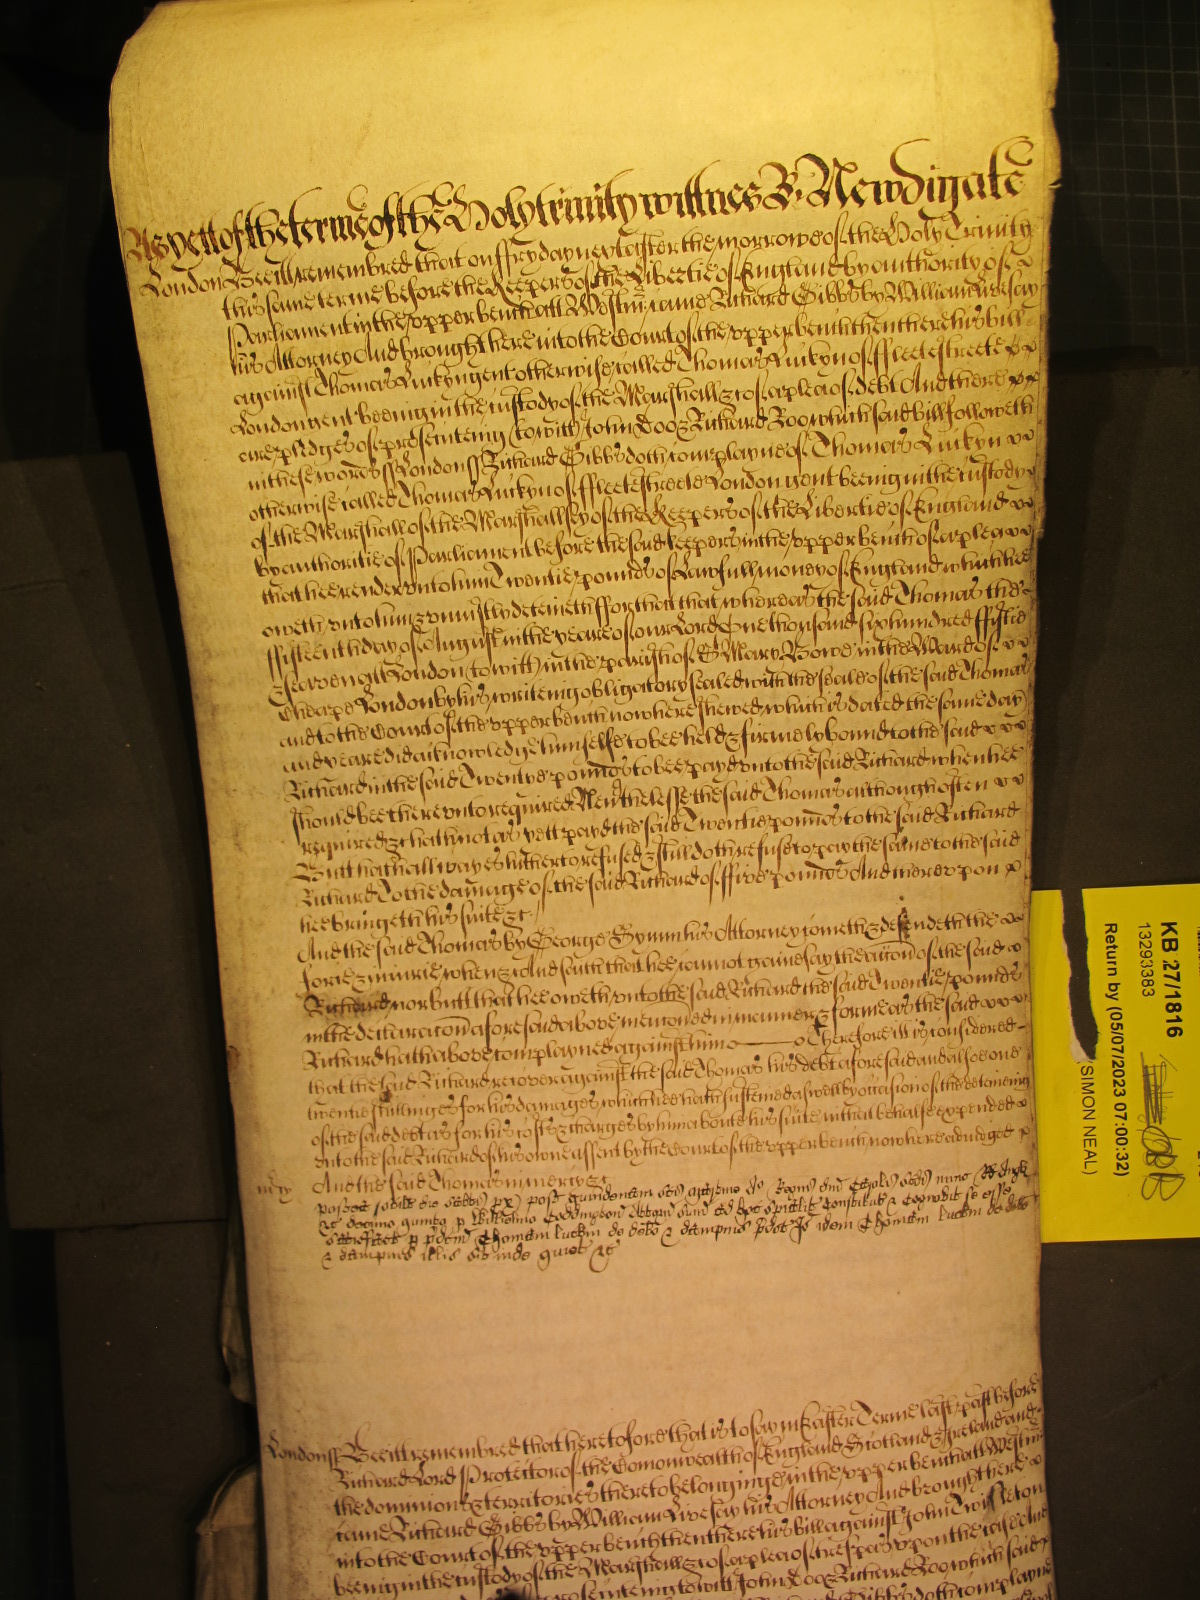 As yett of the terme of the Holy trinity wittnes R: Newdigate
London Bee itt remembred that on ffryday next after the morrowe of the Holy Trinity
this same terme before the Keepers of the Libertie of England by authority of
Parliament in the upper bench att Westm came Richard Gibbs by William Livesay
his Attorney And brought here into the Court of the upper bench then there his bill
against Thomas Luckyn gent otherwise called Thomas Luckyn of ffleetestreete
London gent beeing in the custody of the Marshall &c of a plea of debt And there
are pledges of prosecuteing (to witt) John Doo & Richard Roo which said bill followeth
in these words ss London ss Richard Gibbs doth complayne of Thomas Luckyn
otherwise called Thomas Luckyn of ffleetestreete London gent beeing in the custody
of the Marshall of the Marshallsey of the Keepers of the Libertie of England
by authoritie of Parliament before the said keepers in the upper bench of a plea
that hee render unto him Twentie pounds of Lawfull money of England which hee
oweth unto him & unjustly deteineth ffor that that whereas the said Thomas the
ffifteenth day of August in the yeare of our Lord One thousand six hundred ffiftie
& seaven att London (to witt) in the parish of St Mary Bowe in the Ward of
Cheape London by his writeing obligatory sealed with the seale of the said Thomas
and to the Court of the upper bench now here shewed which is dated the same day
and yeare did acknowledge himselfe to bee held & firmely bound to the said
Richard in the said Twentye pounds to bee payd unto the said Richard when hee
should bee thereunto required Nevthelesse the said Thomas although often
required &c hath not as yett payd the said Twentie pounds to the said Richard
Butt hath allwayes hitherto refused & still doth refuse to pay the same to the said
Richard To the damage of the said Richard of ffive pounds And thereupon
hee bringeth his suite &c
And the said Thomas by George Gynn his Attorney cometh & defendeth the
force & injurie when &c And saith that hee cannot gainesay the accion of the said
Richard nor butt that hee oweth unto the said Richard the said Twentie pounds
in the declaracon aforesaid above mencioned in manner & forme as the said
Richard hath above complayned against him Therefore itt is considered
that the said Richard recover against the said Thomas his debt aforesaid and alsoe
twentie shillinges for his damages which hee hath susteined aswell by occasion of the deteineing
of the said debt as for his costs & charges by him about his suite in that behalfe expended
unto the said Richard of his owne assent by the Court of the upper bench now here adiudged
And the said Thomas in mercy &c
mcy
Postea scilt die post quindenam sci dni Caroli scdi nunc Re Angl
&c decimo quinto p Willielmo Coddington Attorn sum ad hoc spialit Constitut & cognovit se esse
satisfact p pdcm Thomam Luckin de debo & dampnis pdct Io idem Thomam Luckin de debo
& dampnis illis sit inde quiet &c
London ss Bee itt remembred that heretofore that is to say in Easter Terme last past before
Richard Lord Protector of the Comonwealth of England Scotland & Ireland and
the dominions & territories thereto belonginge in the upper bench att Westm
came Richard Gibbs by William Livesay his Attorney And brought here
into the Court of the upper bench then there his bill against John Twisleton
beeing in the custody of the Marshall &c of a plea of trespas upon the case And
prosecuteing to witt John Doo & Richard Roo which said
Gibbs doth complayne
KB 27/1816
13293383
Return by (05/07/2023 07:00:32)
(SIMON NEAL)